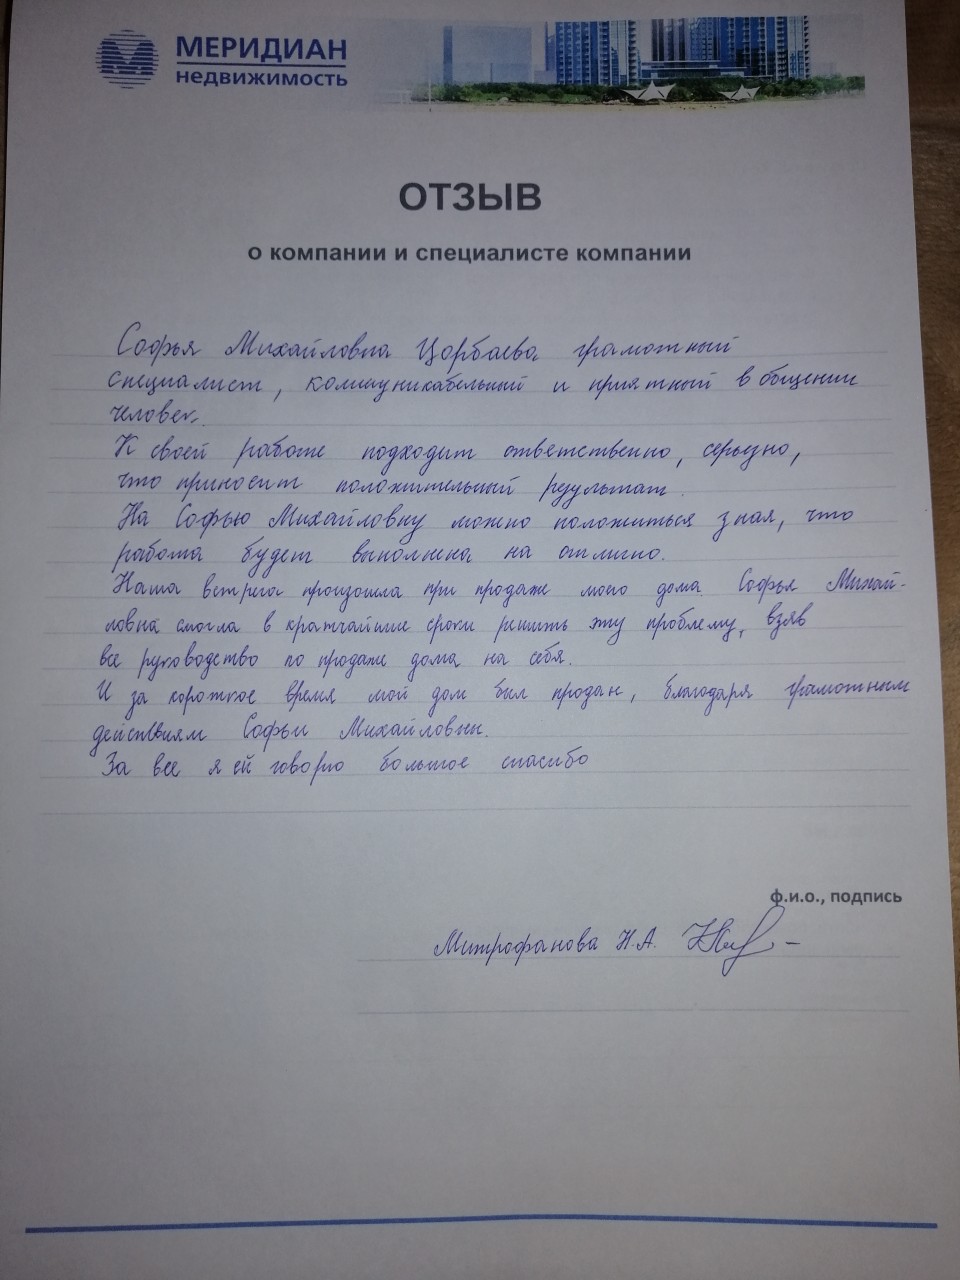 МЕРИДИАН
недвижимость
ОТЗЫВ
о компании и специалисте компании
Софья Михайловна Цорбаева грамотный
специалист, коммуникабельный и приятный в общении
человек.
К своей работе подходит ответственно, серьезно,
что приносит положительный результат.
На Софью Михайловну можно положиться зная, что
работа будет выполнена на отлично.
Наша встреча произошла при продаже моего дома Софья Михай-
ловна смогла в кратчайшие сроки решить эту проблему, взяв
все руководство по продаже дома на себя.
И за короткое время мой дом был продан, благодаря грамотным
действиям Софьи Михайловны.
За все я ей говорю большое спасибо
ф.и.о., подпись
Митрофанова Н.А.